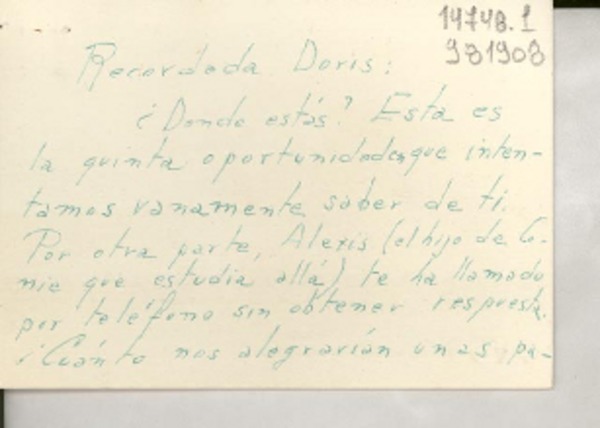 14748.1
981908
Recordada Doris:
¿Donde estás? Esta es
la quinta oportunidad en que inten-
tamos vanamente saber de ti.
Por otra parte, Alexis (el hijo de Co-
nie que estudia allá) te ha llamado
por teléfono sin obtener respuesta.
¡Cuánto nos alegrarían unas pa-